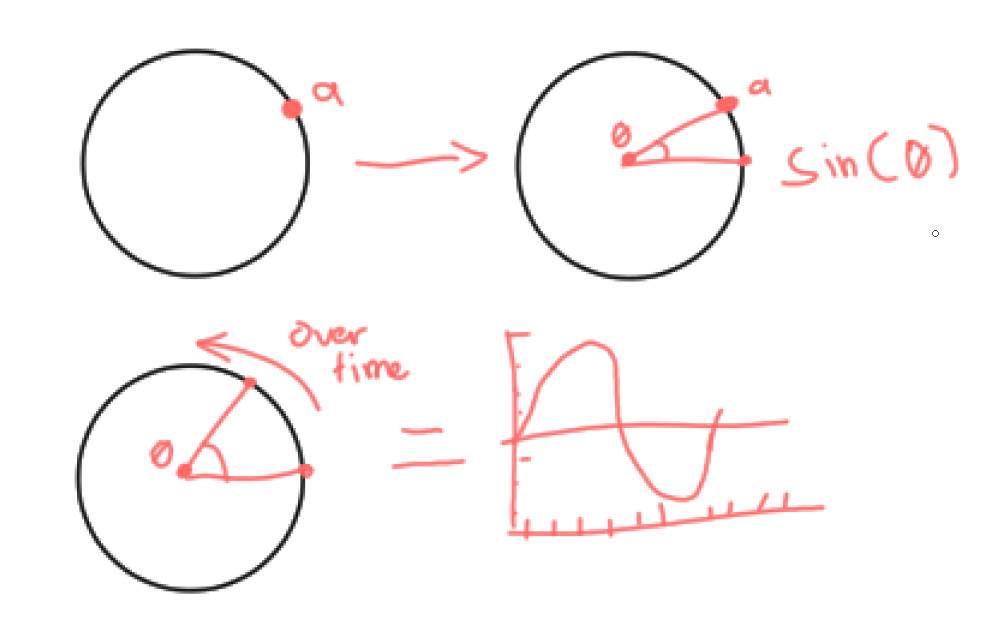 a
a
θ
sin(θ)
over
time
θ
=